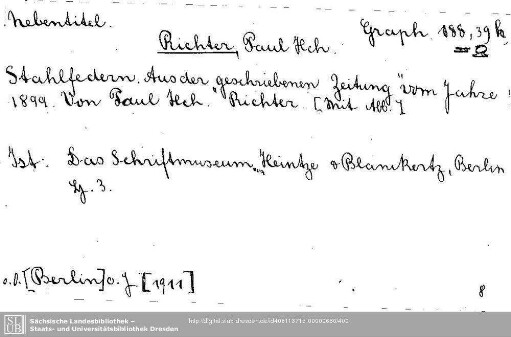 Nebentitel.
Graph. 188, 39 k
Richter, Paul Hch.
Stahlfedern. Aus der „geschriebenen Zeitung" vom Jahre
1899. Von Paul Hch. Richter. [Mit Abb.]
Ist: Das Schriftmuseum Heintze & Blanckertz, Berlin
Lf. 3.
o.O. [Berlin] o. J. [1911]
8
SLUB Sächsische Landesbibliothek –
Staats- und Universitätsbibliothek Dresden